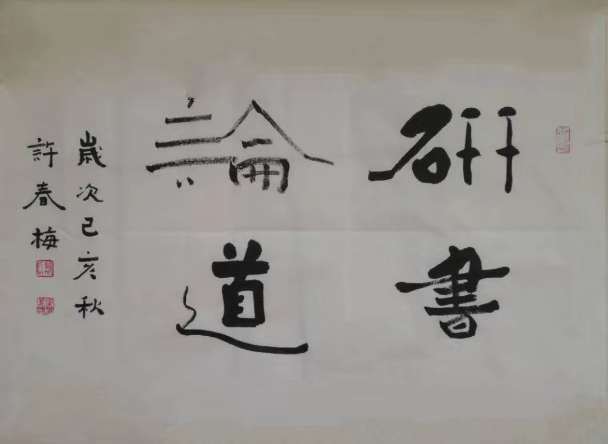 研書
論道
歲次己亥秋
許春梅